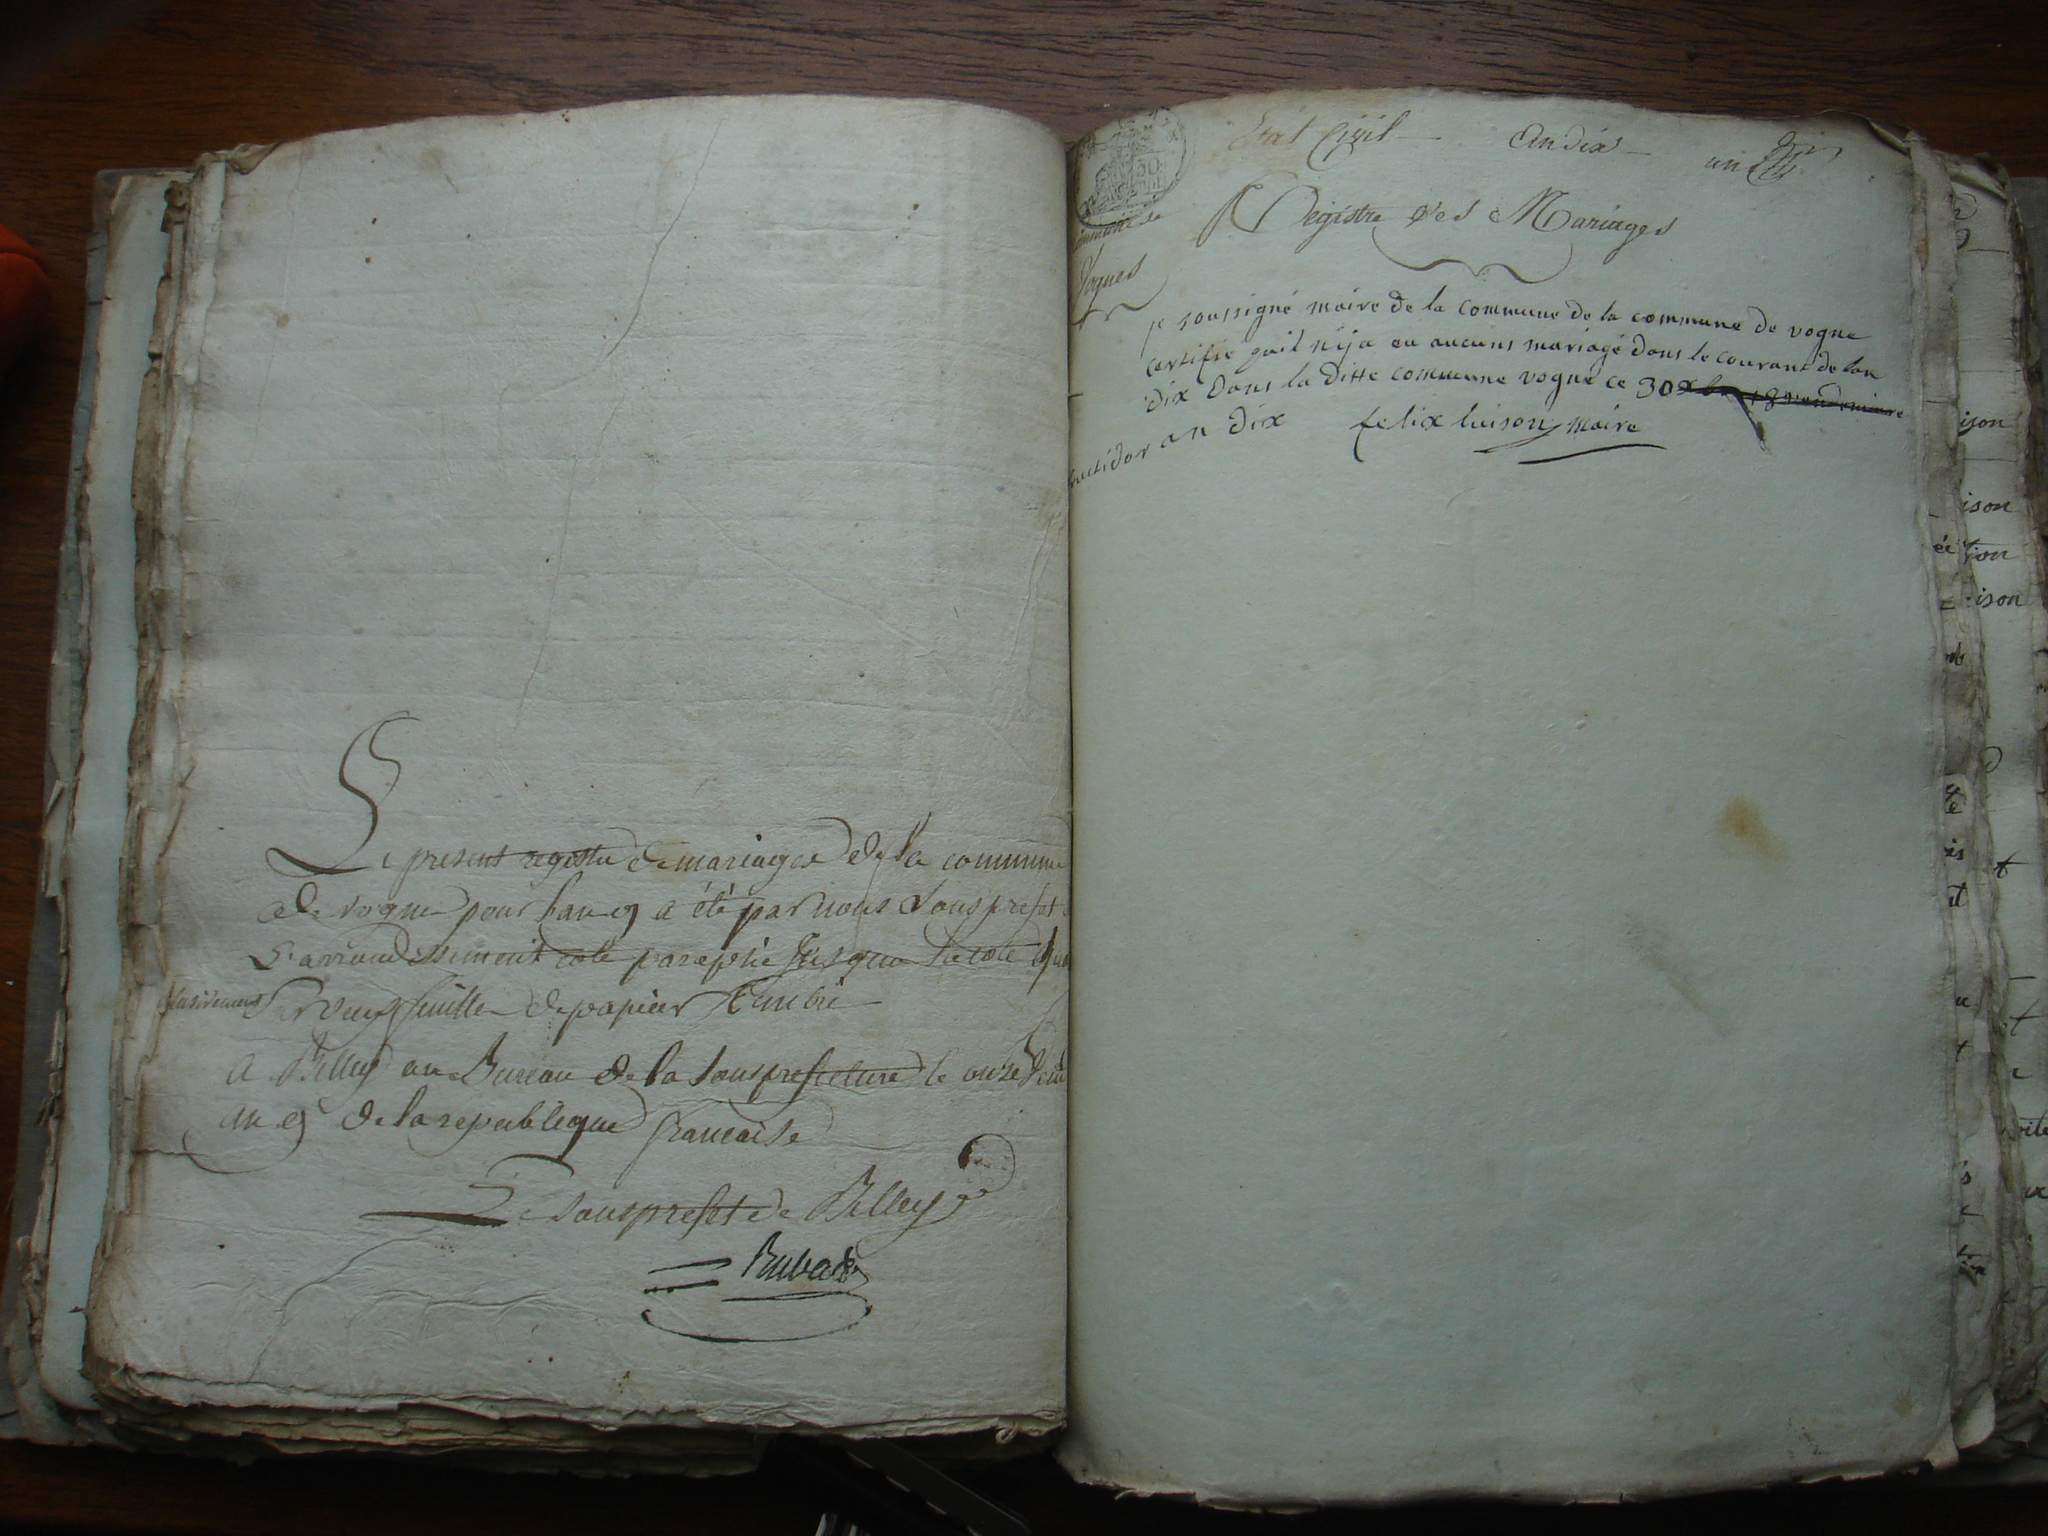 Le present registre de mariages de la commune
de vogne pour l'an 9 a été par nous Souspréfet
d'arrondissement coté paraphé jusqua la cote
Sur deux feuilles de papier timbré
A Belley au Bureau de la Souspréfecture le onze
an 9 de la republique francaise
Le souspréfet de Belley
Rubat
Etat Civil an dix un
30
Commune de
Vognes
Registre des Mariages
je soussigné maire de la commune de la commune de vogne
certifie quil nija eu aucuns mariage dans le courant de lan
dix dans la ditte commune vogne ce 30 xbre 18 vendemiare
fructidor an dix felix luison maire
ison
ison
ison